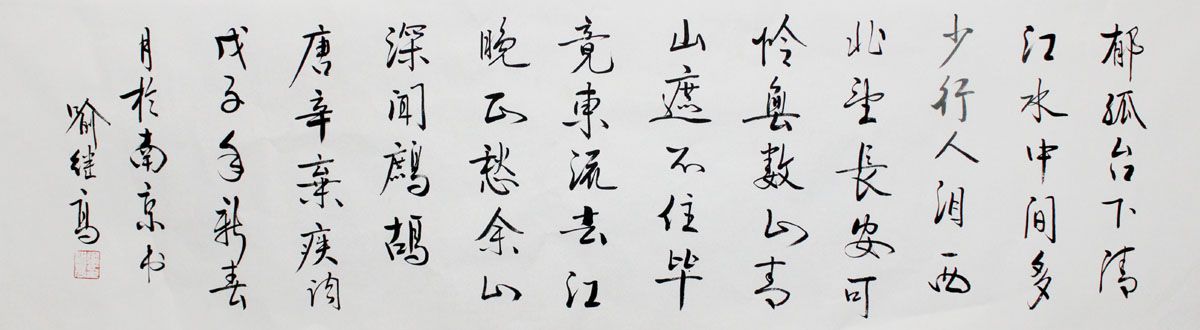 郁孤台下清
江水中间多
少行人泪西
北望長安可
怜無数山青
山遮不住毕
竟東流去江
晚正愁余山
深闻鷓鴣
唐辛棄疾词
戊子年新春
月於南京书
喻继高